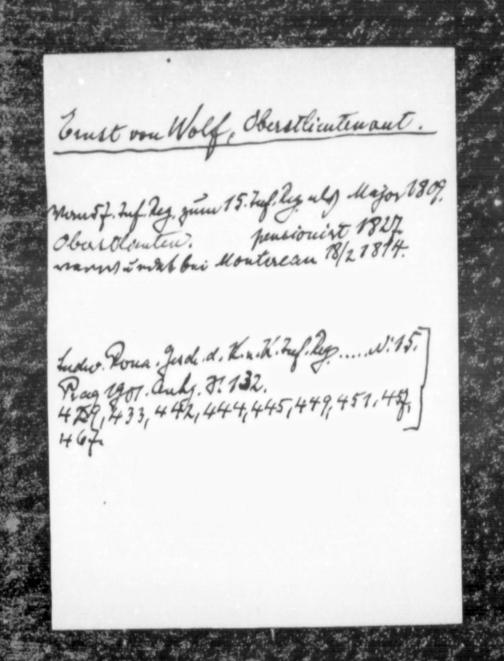 Ernst von Wolf, Oberstlieutenant.
Vom 57. Inf. Reg. zum 15. Inf. Reg. als Major 1809.
Oberstlieuten. pensionirt 1827.
verwundet bei Montereau 18/2 1814.
Ludw. Rona. Gesch. d. K. u. K. Inf. Reg ..... Nr. 15.
Prag 1901. Anhg. S. 132.
429, 433, 442, 444, 445, 449, 451, 457,
467.